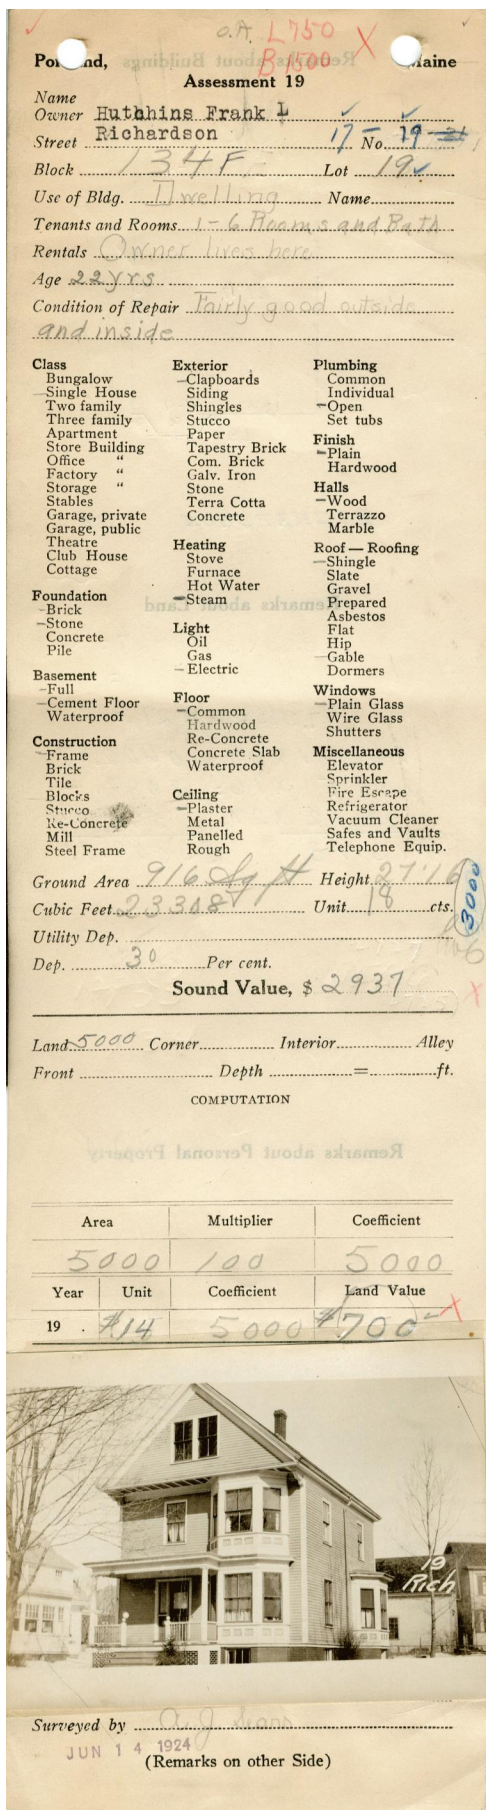 O.A. L750
B1500
Portland, Maine
Assessment 19
Name
Owner Hutchins Frank L
Street Richardson 17 - No. 19 - 21
Block 134F Lot 19
Use of Bldg. Dwelling Name
Tenants and Rooms 1-6 Rooms and Bath
Rentals Owner lives here
Age 22 yrs
Condition of Repair Fairly good outside
and inside
Class
Bungalow
Single House
Two family
Three family
Apartment
Store Building
Office "
Factory "
Storage "
Stables
Garage, private
Garage, public
Theatre
Club House
Cottage
Foundation
Brick
Stone
Concrete
Pile
Basement
Full
Cement Floor
Waterproof
Construction
Frame
Brick
Tile
Blocks
Stucco
Re-Concrete
Mill
Steel Frame
Exterior
Clapboards
Siding
Shingles
Stucco
Paper
Tapestry Brick
Com. Brick
Galv. Iron
Stone
Terra Cotta
Concrete
Heating
Stove
Furnace
Hot Water
Steam
Light
Oil
Gas
Electric
Floor
Common
Hardwood
Re-Concrete
Concrete Slab
Waterproof
Ceiling
Plaster
Metal
Panelled
Rough
Plumbing
Common
Individual
Open
Set tubs
Finish
Plain
Hardwood
Halls
Wood
Terrazzo
Marble
Roof — Roofing
Shingle
Slate
Gravel
Prepared
Asbestos
Flat
Hip
Gable
Dormers
Windows
Plain Glass
Wire Glass
Shutters
Miscellaneous
Elevator
Sprinkler
Fire Escape
Refrigerator
Vacuum Cleaner
Safes and Vaults
Telephone Equip.
Ground Area 916 Sq ft Height 27'16
Cubic Feet 23308 Unit 18 cts.
3000
Utility Dep.
Dep. 30 Per cent.
Sound Value, $ 2937
Land 5000 Corner Interior Alley
Front Depth = ft.
COMPUTATION
Area Multiplier Coefficient
5000 100 5000
Year Unit Coefficient Land Value
19 . $14 5000 $700-
19
Rich
Surveyed by A. J. Sears
JUN 14 1924
(Remarks on other Side)